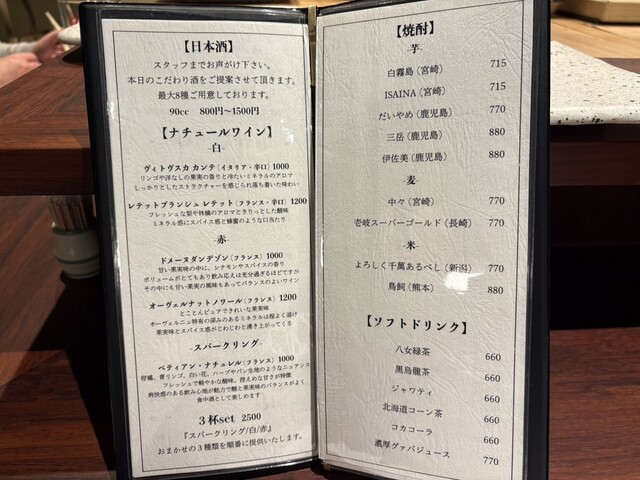 【日本酒】
スタッフまでお声がけ下さい。
本日のこだわり酒をご提案させて頂きます。
最大8種ご用意しております。
90cc 800円〜1500円
【ナチュールワイン】
-白-
ヴィトヴスカ カンテ(イタリア・辛口) 1000
リンゴや洋なしの果実の香りと冷たいミネラルのアロマ
しっかりとしたストラクチャーを感じられ落ち着いた味わい
レテットブランシュ レテット(フランス・辛口) 1200
フレッシュな梨や林檎のアロマときりっとした酸味
ミネラル感にスパイス感と蜂蜜のような口当たり
-赤-
ドメーヌダンデゾン(フランス) 1000
甘い果実味の中に、シナモンやスパイスの香り
ボリュームがとてもあり飲み応えは充分過ぎるほどですが
その中にも甘い果実の風味もあってバランスのよいワイン
オーヴェルナットノワール(フランス) 1200
とことんピュアできれいな果実味
オーヴェルニュ特有の深みのあるミネラルは程よく溶け
果実味とスパイス感がじわじわと湧き上がってくる
-スパークリング-
ペティアン・ナチュレル(フランス) 1000
柑橘、青リンゴ、白い花、ハーブやパン生地のようなニュアンス
フレッシュで軽やかな酸味、控えめな甘さが特徴
爽快感のある飲み心地が魅力で酸と果実味のバランスがよく
食中酒として楽しめます
３杯set 2500
『スパークリング/白/赤』
おまかせの３種類を順番に提供いたします。
【焼酎】
-芋-
白霧島(宮崎) 715
ISAINA(宮崎) 715
だいやめ(鹿児島) 770
三岳(鹿児島) 880
伊佐美(鹿児島) 880
-麦-
中々(宮崎) 770
壱岐スーパーゴールド(長崎) 770
-米-
よろしく千萬あるべし(新潟) 770
鳥飼(熊本) 880
【ソフトドリンク】
八女緑茶 660
黒烏龍茶 660
ジャワティ 660
北海道コーン茶 660
コカコーラ 660
濃厚グァバジュース 770